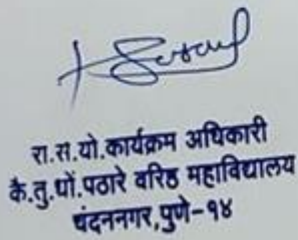 रा.स.यो.कार्यक्रम अधिकारी
कै.तु.धों.पठारे वरिष्ठ महाविद्यालय
चंदननगर,पुणे-१४